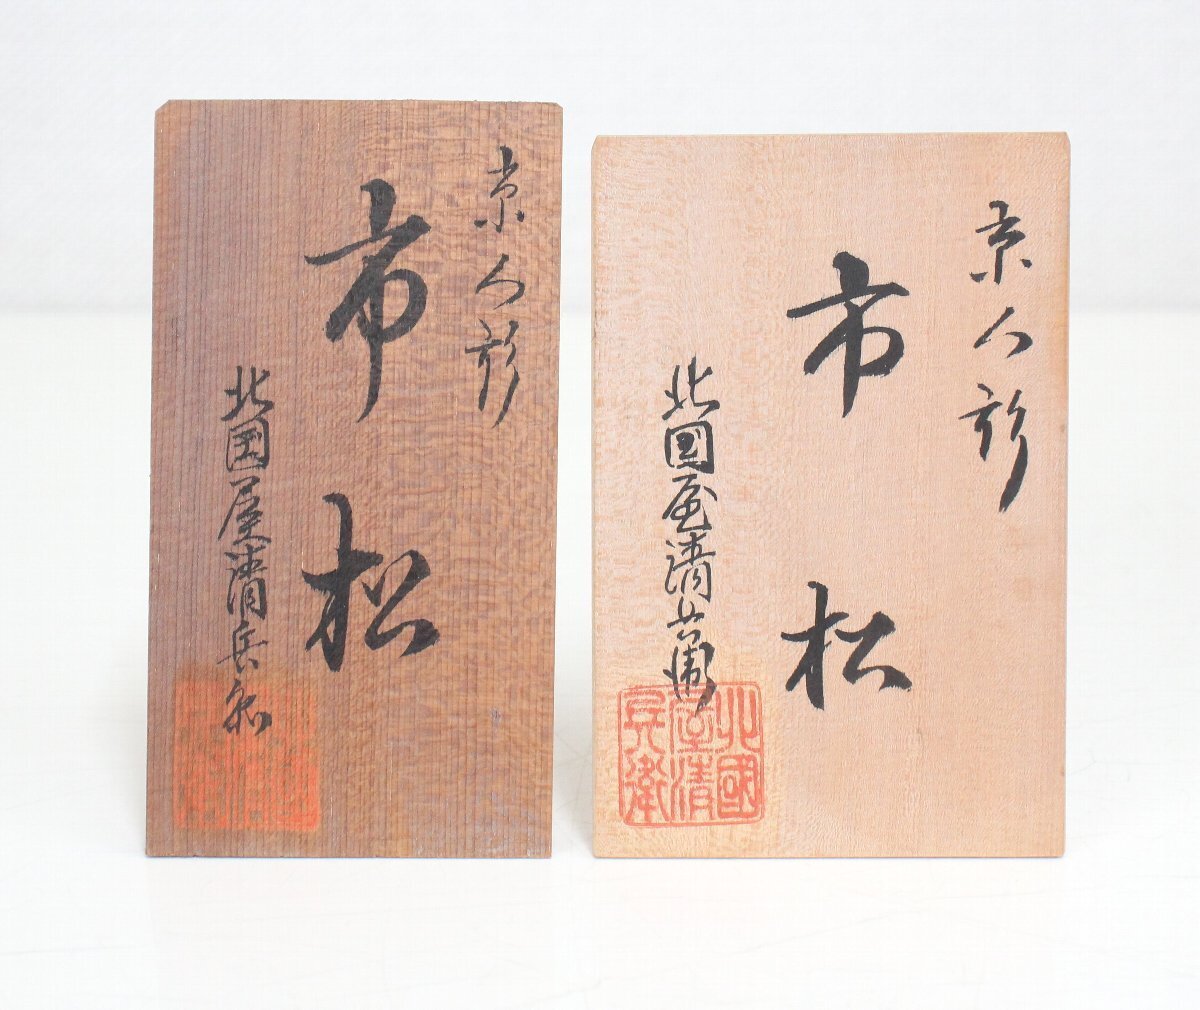 京人形
市松
北国屋清兵衛
京人形
市松
北国屋清兵衛
北國
屋清
兵衞